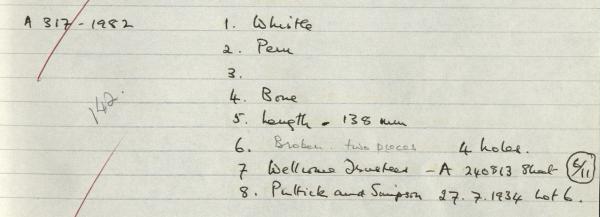 A 317 - 1982
1. Whistle
2. Peru
3.
4. Bone
5. Length - 138 mm
6. Broken two pieces 4 holes.
142.
7 Wellcome Trustees - A 240813 6/11
8. Puttick and Simpson 27. 7. 1934 Lot 6.